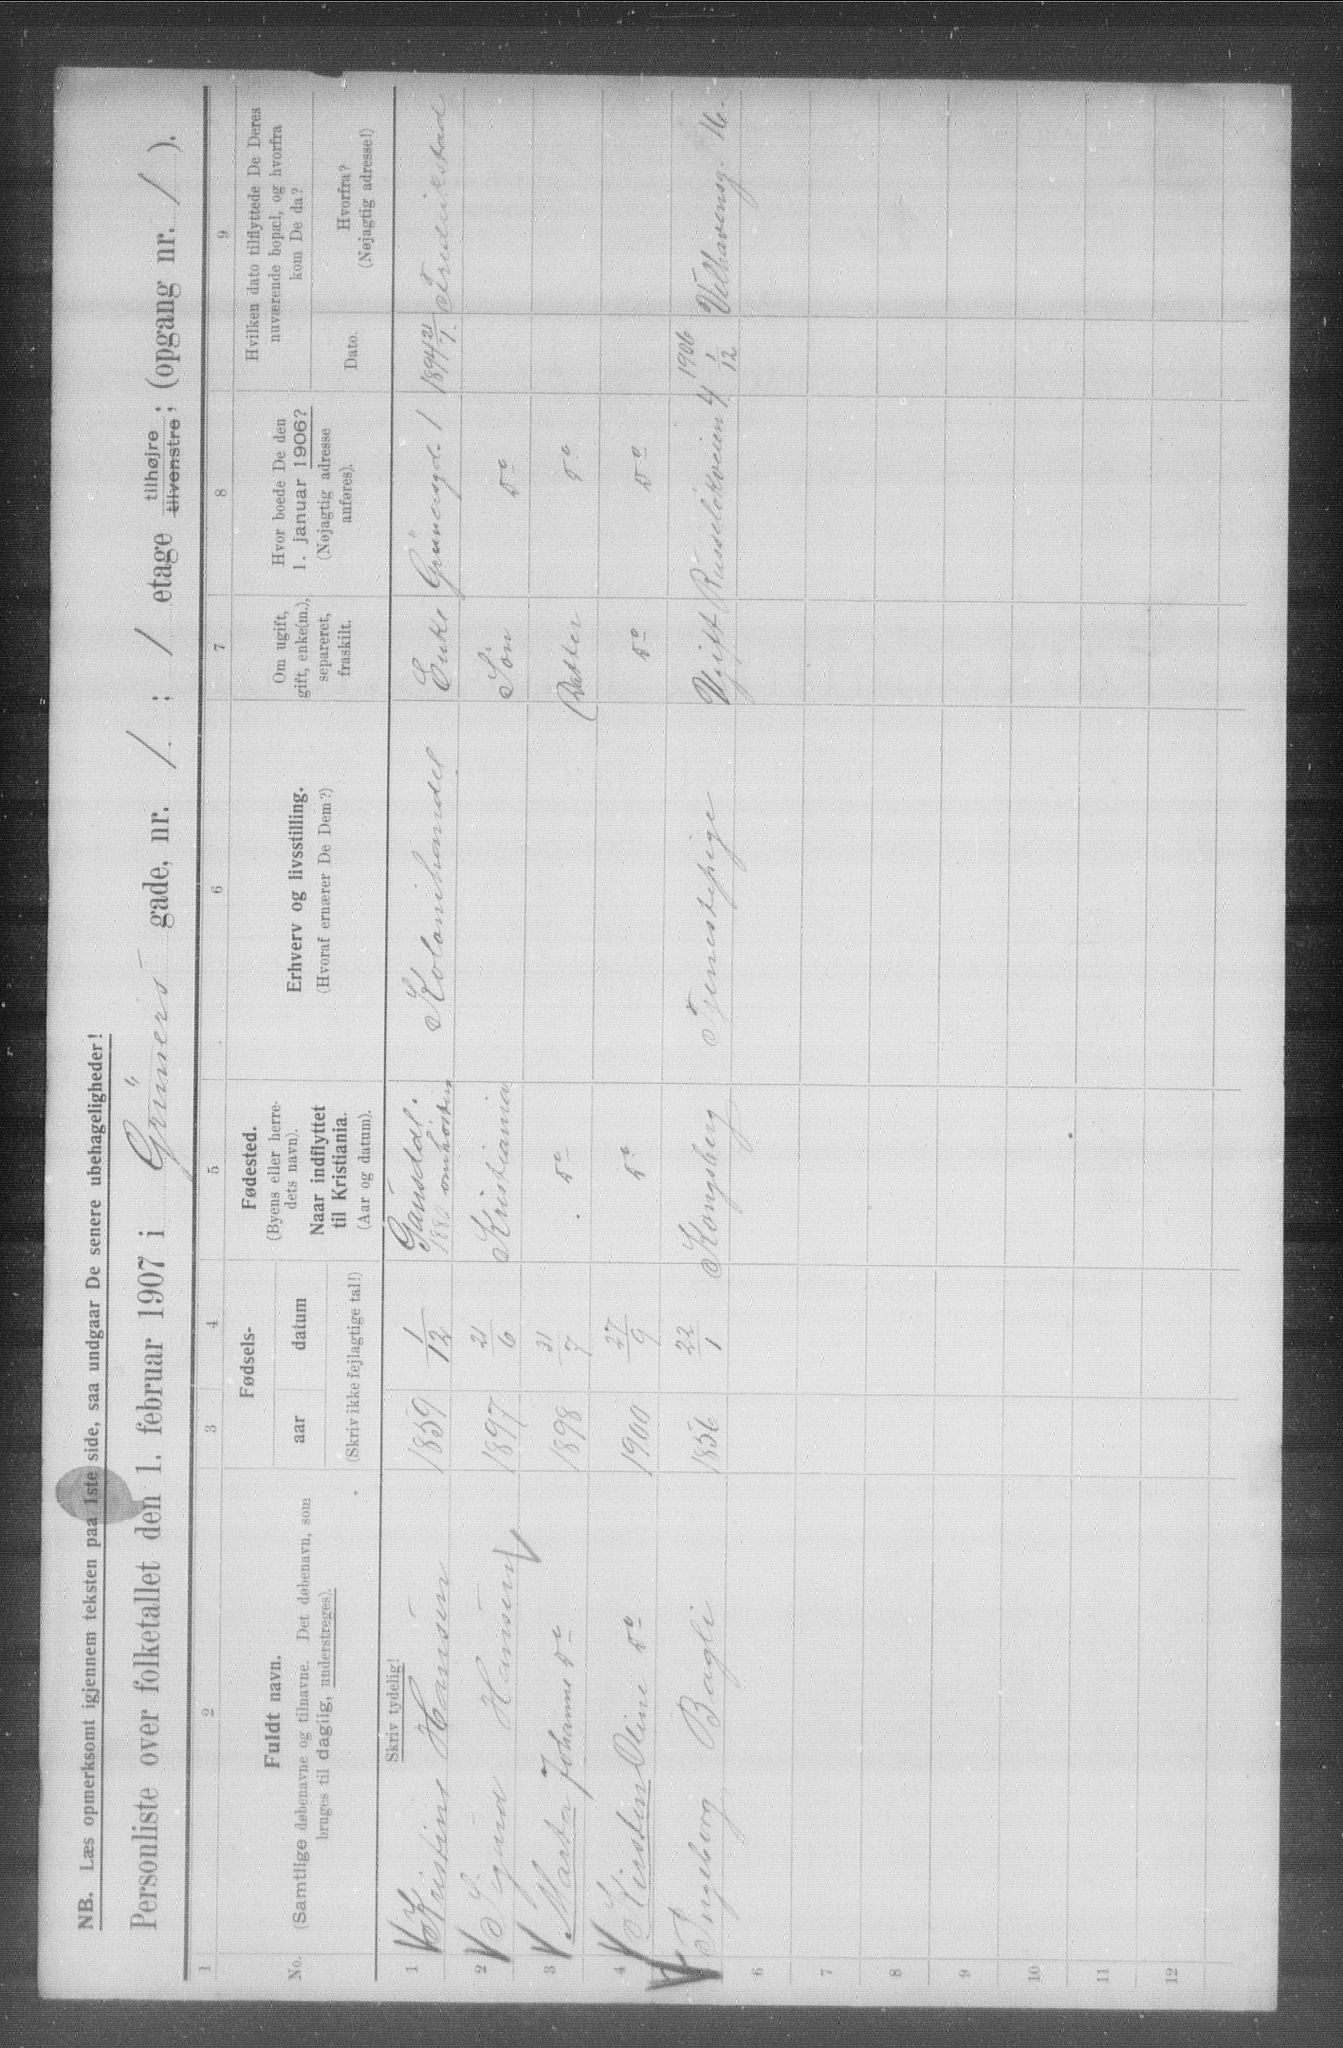 NB. Læs opmerksomt igjennem teksten paa 1ste side, saa undgaar De senere ubehageligheder!
Personliste over folketallet den 1. februar 1907 i Grüners gade, nr. 1. ; 1 etage tilhøjre tilvenstre; (opgang nr. 1 ).
1 2 3 4 5 6 7 8 9
No.
Fuldt navn.
(Samtlige døbenavne og tilnavne. Det døbenavn, som
bruges til daglig, understreges).
Fødsels-
aar datum
(Skriv ikke fejlagtige tal!)
Fødested.
(Byens eller herre-
dets navn).
Naar indflyttet
til Kristiania.
(Aar og datum).
Erhverv og livsstilling.
(Hvoraf ernærer De Dem?)
Om ugift,
gift, enke(m.),
separeret,
fraskilt.
Hvor boede De den
1. januar 1906?
(Nøjagtig adresse
anføres).
Hvilken dato tilflyttede De Deres
nuværende bopæl, og hvorfra
kom De da?
Dato.
Hvorfra?
(Nøjagtig adresse!)
Skriv tydelig!
1 Kristine Hansen 1859 1/12 Gausdal. 1880 Kolonihandel Enke Grünersgd. 1 1894 21/7. Fredrikstad
2 Sigurd Hansen 1897 21/6 Kristiania Søn Do
3 Marta Johanne Do 1898 31/7 Do Datter Do
4 Kirsten Oline Do 1900 27/9 Do Do Do
5 Ingeborg Bagli 1856 22/1 Kongsberg Tjenestepige Ugift Russeløkveien 4 1906 1/12 Velhavensg. 16.
6
7
8
9
10
11
12